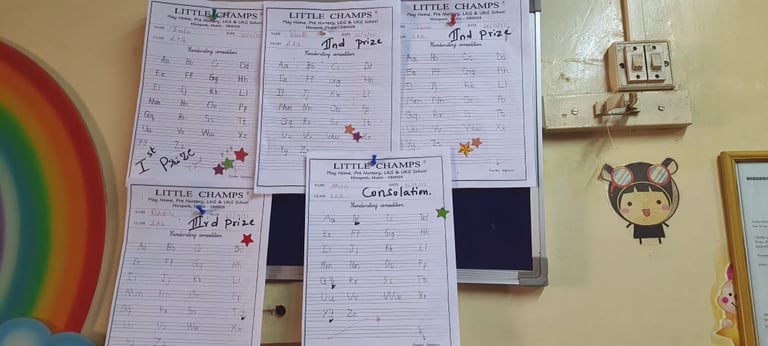 LITTLE CHAMPS
Play Home, Pre Nursery, LKG & UKG School
NAME DATE
CLASS LKG
Handwriting competition
Aa Bb Cc Dd
Ee Ff Gg Hh
Ii Jj Kk Ll
Mm Nn Oo Pp
Qq Rr Ss Tt
Uu Vv Ww Xx
Yy Zz
Ist Prize
LITTLE CHAMPS
Play Home, Pre Nursery, LKG & UKG School
NAME DATE
IInd Prize
CLASS LKG
Handwriting competition
Aa Bb Cc Dd
Ee Ff Gg Hh
Ii Jj Kk Ll
Mm Nn Oo Pp
Qq Rr Ss Tt
Uu Vv Ww Xx
Yy Zz
LITTLE CHAMPS
Play Home, Pre Nursery, LKG & UKG School
IInd Prize
Handwriting competition
Aa Bb Cc Dd
Ee Ff Gg Hh
Ii Jj Kk Ll
Mm Nn Oo Pp
Qq Rr Ss Tt
Uu Vv Ww Xx
Yy Zz
LITTLE CHAMPS
Play Home, Pre Nursery, LKG & UKG School
NAME
IIIrd Prize
CLASS LKG
Handwriting competition
Aa Bb Cc Dd
Ee Ff Gg Hh
Ii Jj Kk Ll
Mm Nn Oo Pp
Qq Rr Ss Tt
Uu Vv Ww Xx
LITTLE CHAMPS
Play Home, Pre Nursery, LKG & UKG School
NAME DATE
Consolation.
CLASS LKG
Handwriting competition
Aa Bb Cc Dd
Ee Ff Gg Hh
Ii Jj Kk Ll
Mm Nn Oo Pp
Qq Rr Ss Tt
Uu Vv Ww Xx
Yy Zz